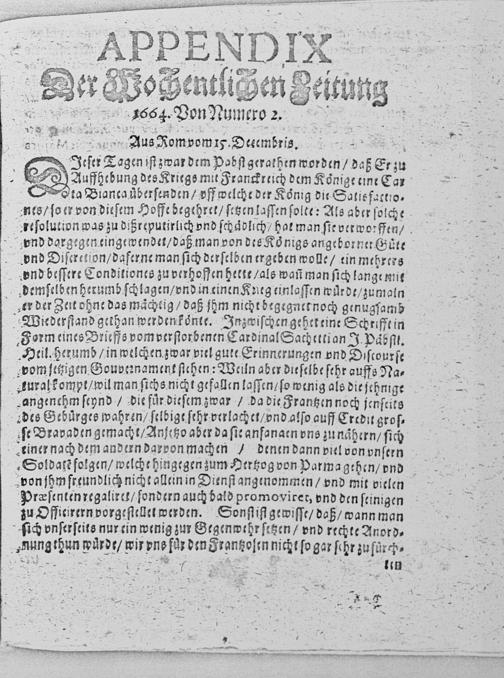 APPENDIX
Der Wochentlichen Zeitung
1664. Von Numero 2.
Aus Rom vom 15. Decembris.
DIeser Tagen ist zwar dem Pabst gerathen worden / daß Er zu
Auffhebung des Kriegs mit Franckreich dem Könige eine Car
ta Bianca übersenden / vff welche der König die Satisfactio-
nes / so er von diesem Hoffe begehret / setzen lassen solte: Als aber solche
resolution was zu disreputirlich vnd schädlich / hat man sie verworffen /
vnd dargegen eingewendet / daß man von des Königs angeborner Güte
vnd Discretion / daferne man sich derselben ergeben wolle / ein mehrers
vnd bessere Conditiones zu verhoffen hette / als wañ man sich lange mit
demselben herumb schlagen / vnd in einen Krieg einlassen würde / zumaln
er der Zeit ohne das mächtig / daß jhm nicht begegnet noch genugsamb
Wiederstand gethan werden könte. Inzwischen gehet eine Schrifft in
Form eines Brieffs vom verstorbenen Cardinal Sachetti an J. Päbstl.
Heil. herumb / in welchen zwar viel gute Erinnerungen vnd Discourse
vom jetzigen Gouvernament stehen: Weiln aber dieselbe sehr auffs Na-
tural kompt / wil man sichs nicht gefallen lassen / so wenig als die jehnige
angenehm seynd / die für diesem zwar / da die Frantzen noch jenseits
des Gebürges wahren / selbige sehr verlachet / vnd also auff Credit gros-
se Bravaden gemacht / Anjetzo aber da sie anfangen vns zu nähern / sich
einer nach dem andern darvon machen / denen dann viel von vnsern
Soldatẽ folgen / welche hingegen zum Hertzog von Parma gehen / vnd
von jhm freundlich nicht allein in Dienst angenommen / vnd mit vielen
Præsenten regaliret / sondern auch bald promoviret, vnd den seinigen
zu Officirern vorgestellet werden. Sonst ist gewisse / daß / wann man
sich vnserseits nur ein wenig zur Gegenwehr setzen / vnd rechte Anord-
nung thun würde / wir vns für den Frantzosen nicht so gar sehr zu fürch-
ten